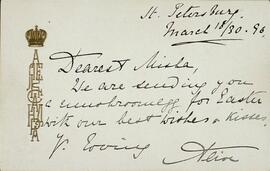 St. Petersburg.
March 18/30. 96
Dearest Misha,
We are sending you
a mushroomegg for Easter
with our best wishes & kisses.
Yr. loving Alix